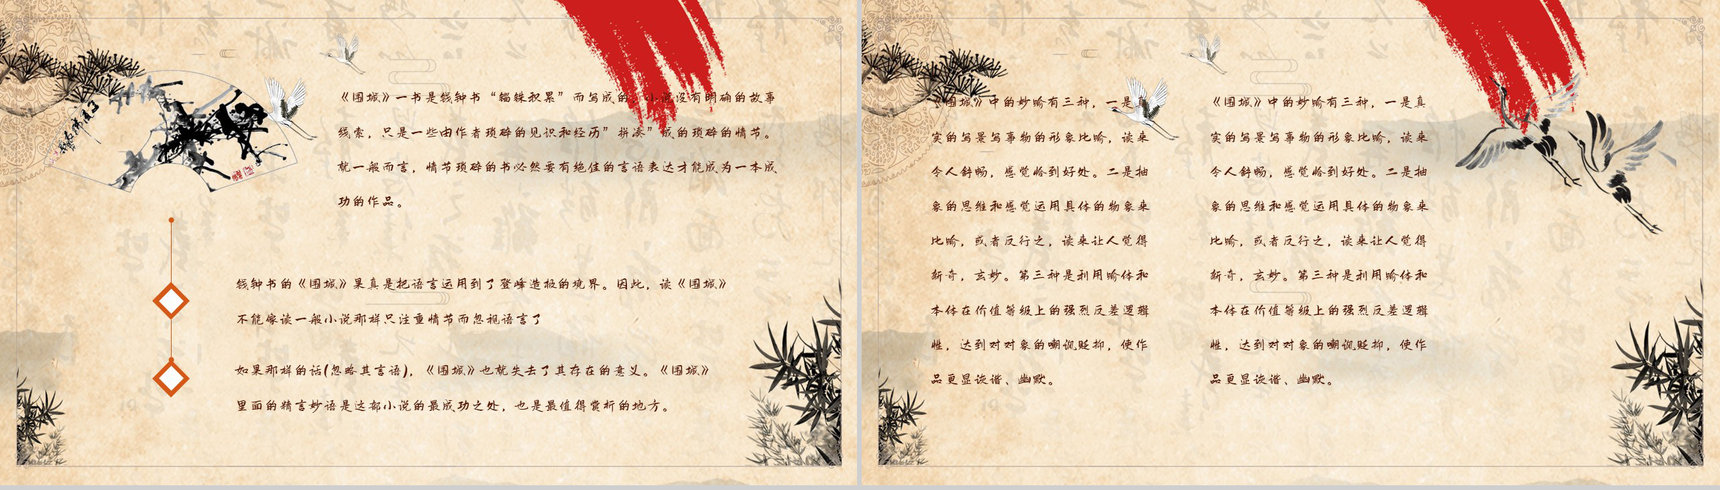 《围城》一书是钱钟书“锱铢积累”而写成的，小说没有明确的故事
线索，只是一些由作者琐碎的见识和经历”拼凑”成的琐碎的情节。
就一般而言，情节琐碎的书必然要有绝佳的言语表达才能成为一本成
功的作品。
钱钟书的《围城》果真是把语言运用到了登峰造极的境界。因此，读《围城》
不能像读一般小说那样只注重情节而忽视语言了
如果那样的话(忽略其言语)，《围城》也就失去了其存在的意义。《围城》
里面的精言妙语是这部小说的最成功之处，也是最值得赏析的地方。
《围城》中的妙喻有三种，一是真
实的写景写事物的形象比喻，读来
令人舒畅，感觉恰到好处。二是抽
象的思维和感觉运用具体的物象来
比喻，或者反行之，读来让人觉得
新奇，玄妙。第三种是利用喻体和
本体在价值等级上的强烈反差逻辑
性，达到对对象的嘲讽贬抑，使作
品更显诙谐、幽默。
《围城》中的妙喻有三种，一是真
实的写景写事物的形象比喻，读来
令人舒畅，感觉恰到好处。二是抽
象的思维和感觉运用具体的物象来
比喻，或者反行之，读来让人觉得
新奇，玄妙。第三种是利用喻体和
本体在价值等级上的强烈反差逻辑
性，达到对对象的嘲讽贬抑，使作
品更显诙谐、幽默。